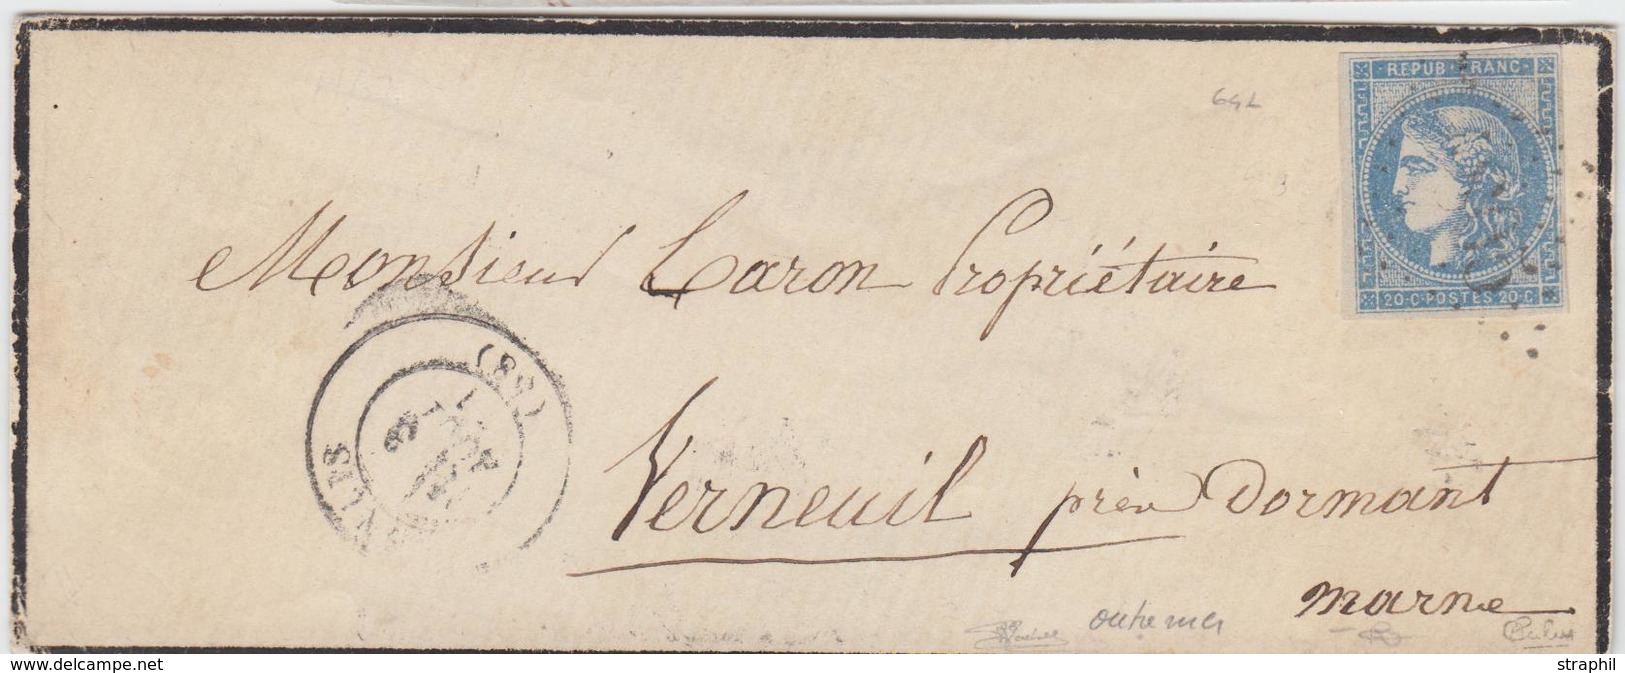 REPUB · FRANC ·
20·C·POSTES 20·C
Monsieur Caron Propriétaire
(88)
AOUT
Verneuil près Dormant
marne
outremer
www.delcampe.net
straphil